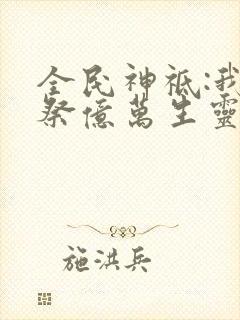 全民神祇:我
祭億萬生靈
施洪兵